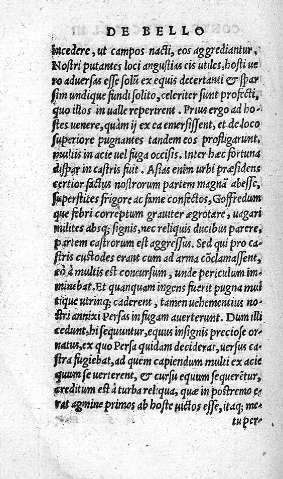 DE BELLO
incedere, ut campos nacti, eos aggrediantur.
Nostri putantes loci angustias cis utiles, hosti ue
ro aduersas esse solũ ex equis decertanti & spar
sim undique fundi solito, celeriter sunt profecti,
quo illos in ualle reperirent. Prius ergo ad ho-
stes uenere, quàm ij ex ea emersissent, et de loco
superiore pugnantes tandem eos profligarunt,
multis in acie uel fuga occisis. Inter hæc fortuna
dispar in castris fuit. Assas enim urbi præsidens
certior factus nostrorum partem magnã abesse,
superstites frigore ac fame confectos, Goffredum
que febri correptum grauiter ægrotare, uagari
milites absq; signis, nec reliquis ducibus parere,
partem castrorum est aggressus. Sed qui pro ca-
stris custodes erant cum ad arma cõclamassent,
eò à multis est concursum, unde periculum im
minebat. Et quanquam ingens fuerit pugna mul
tique utrinq; caderent, tamen uehementius no-
stri annixi Persas in fugam auerterunt. Dum illi
cedunt, hi sequuntur, equus insignis preciose or-
natus, ex quo Persa quidam deciderat, uersus ca
stra fugiebat, ad quem capiendum multi ex acie
quum se uerterent, & cursu equum sequerẽtur,
creditum est à turba reliqua, quæ in postremo e-
rat agmine primos ab hoste uictos esse, itaq; me-
tu per-